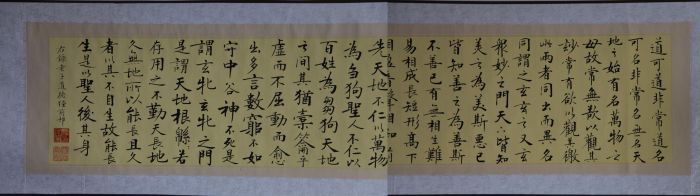 道可道非常道名
可名非常名無名天
地之始有名萬物之
母故常無欲以觀其
妙常有欲以觀其徼
此兩者同出而異名
同謂之玄玄之又玄
衆妙之門天下皆知
美之為美斯惡已
皆知善之為善斯
不善已有無相生難
易相成長短形高下
相
先天地不仁以萬物
為芻狗聖人不仁以
百姓為芻狗天地
之間其猶橐籥乎
虛而不屈動而愈
出多言數窮不如
守中谷神不死是
謂玄牝玄牝之門
是謂天地根綿若
存用之不勤天長地
久天地所以能長且久
者以其不自生故能長
生是以聖人後其身
右錄老子道德經